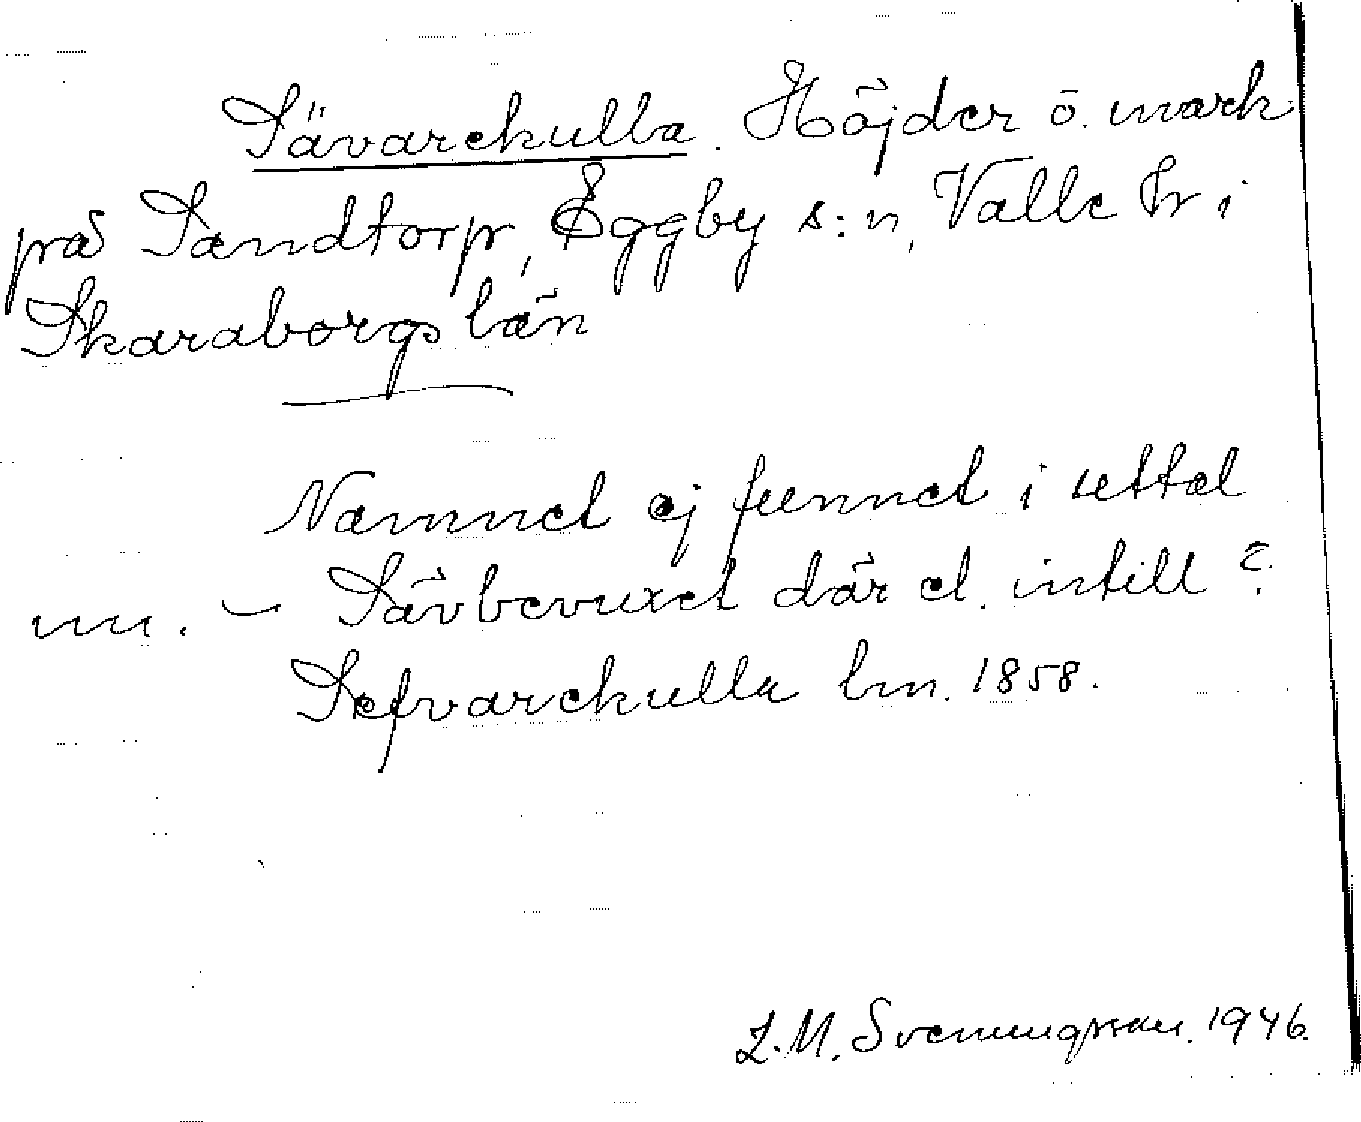 Sävarekulla. Höjder o. mark
på Sandtorp, Eggby s:n, Valle hr i
Skaraborgs län
Namnet ej funnet i uttal
nu. – Sävbevuxet där el. intill?
Sefvarekulla lm. 1858.
L.M. Svenungsson. 1946.